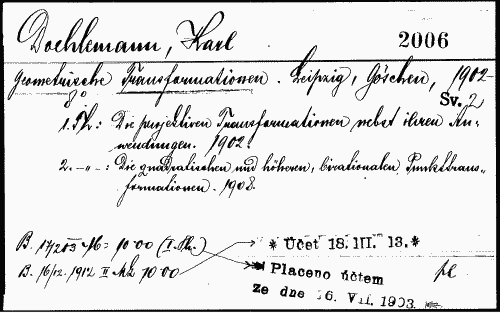 Doehlemann, Karl 2006
Geometrische Transformationen. Leipzig, Göschen, 1902
Sv. 2
1. Th.: Die projektiven Transformationen nebst ihren An-
wendungen. 1902.
2. -„-: Die quadratischen und höheren, birationalen Punkttrans-
formationen. 1908.
B. 10 00 (I. Th.) * Účet 18. III. 13. *
B. 16/12. 1912 II 10 00 Placeno účtem
ze dne 6. VII. 1903.